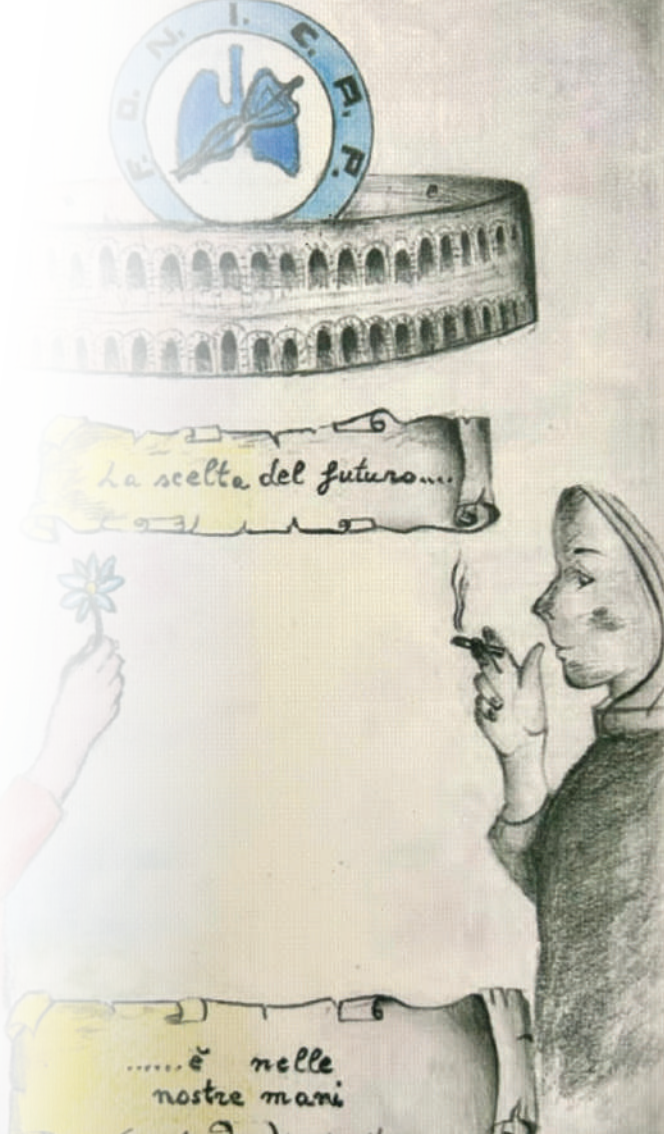 F. O. N. I. C. A. P. P.
La scelta del futuro....
......è nelle
nostre mani